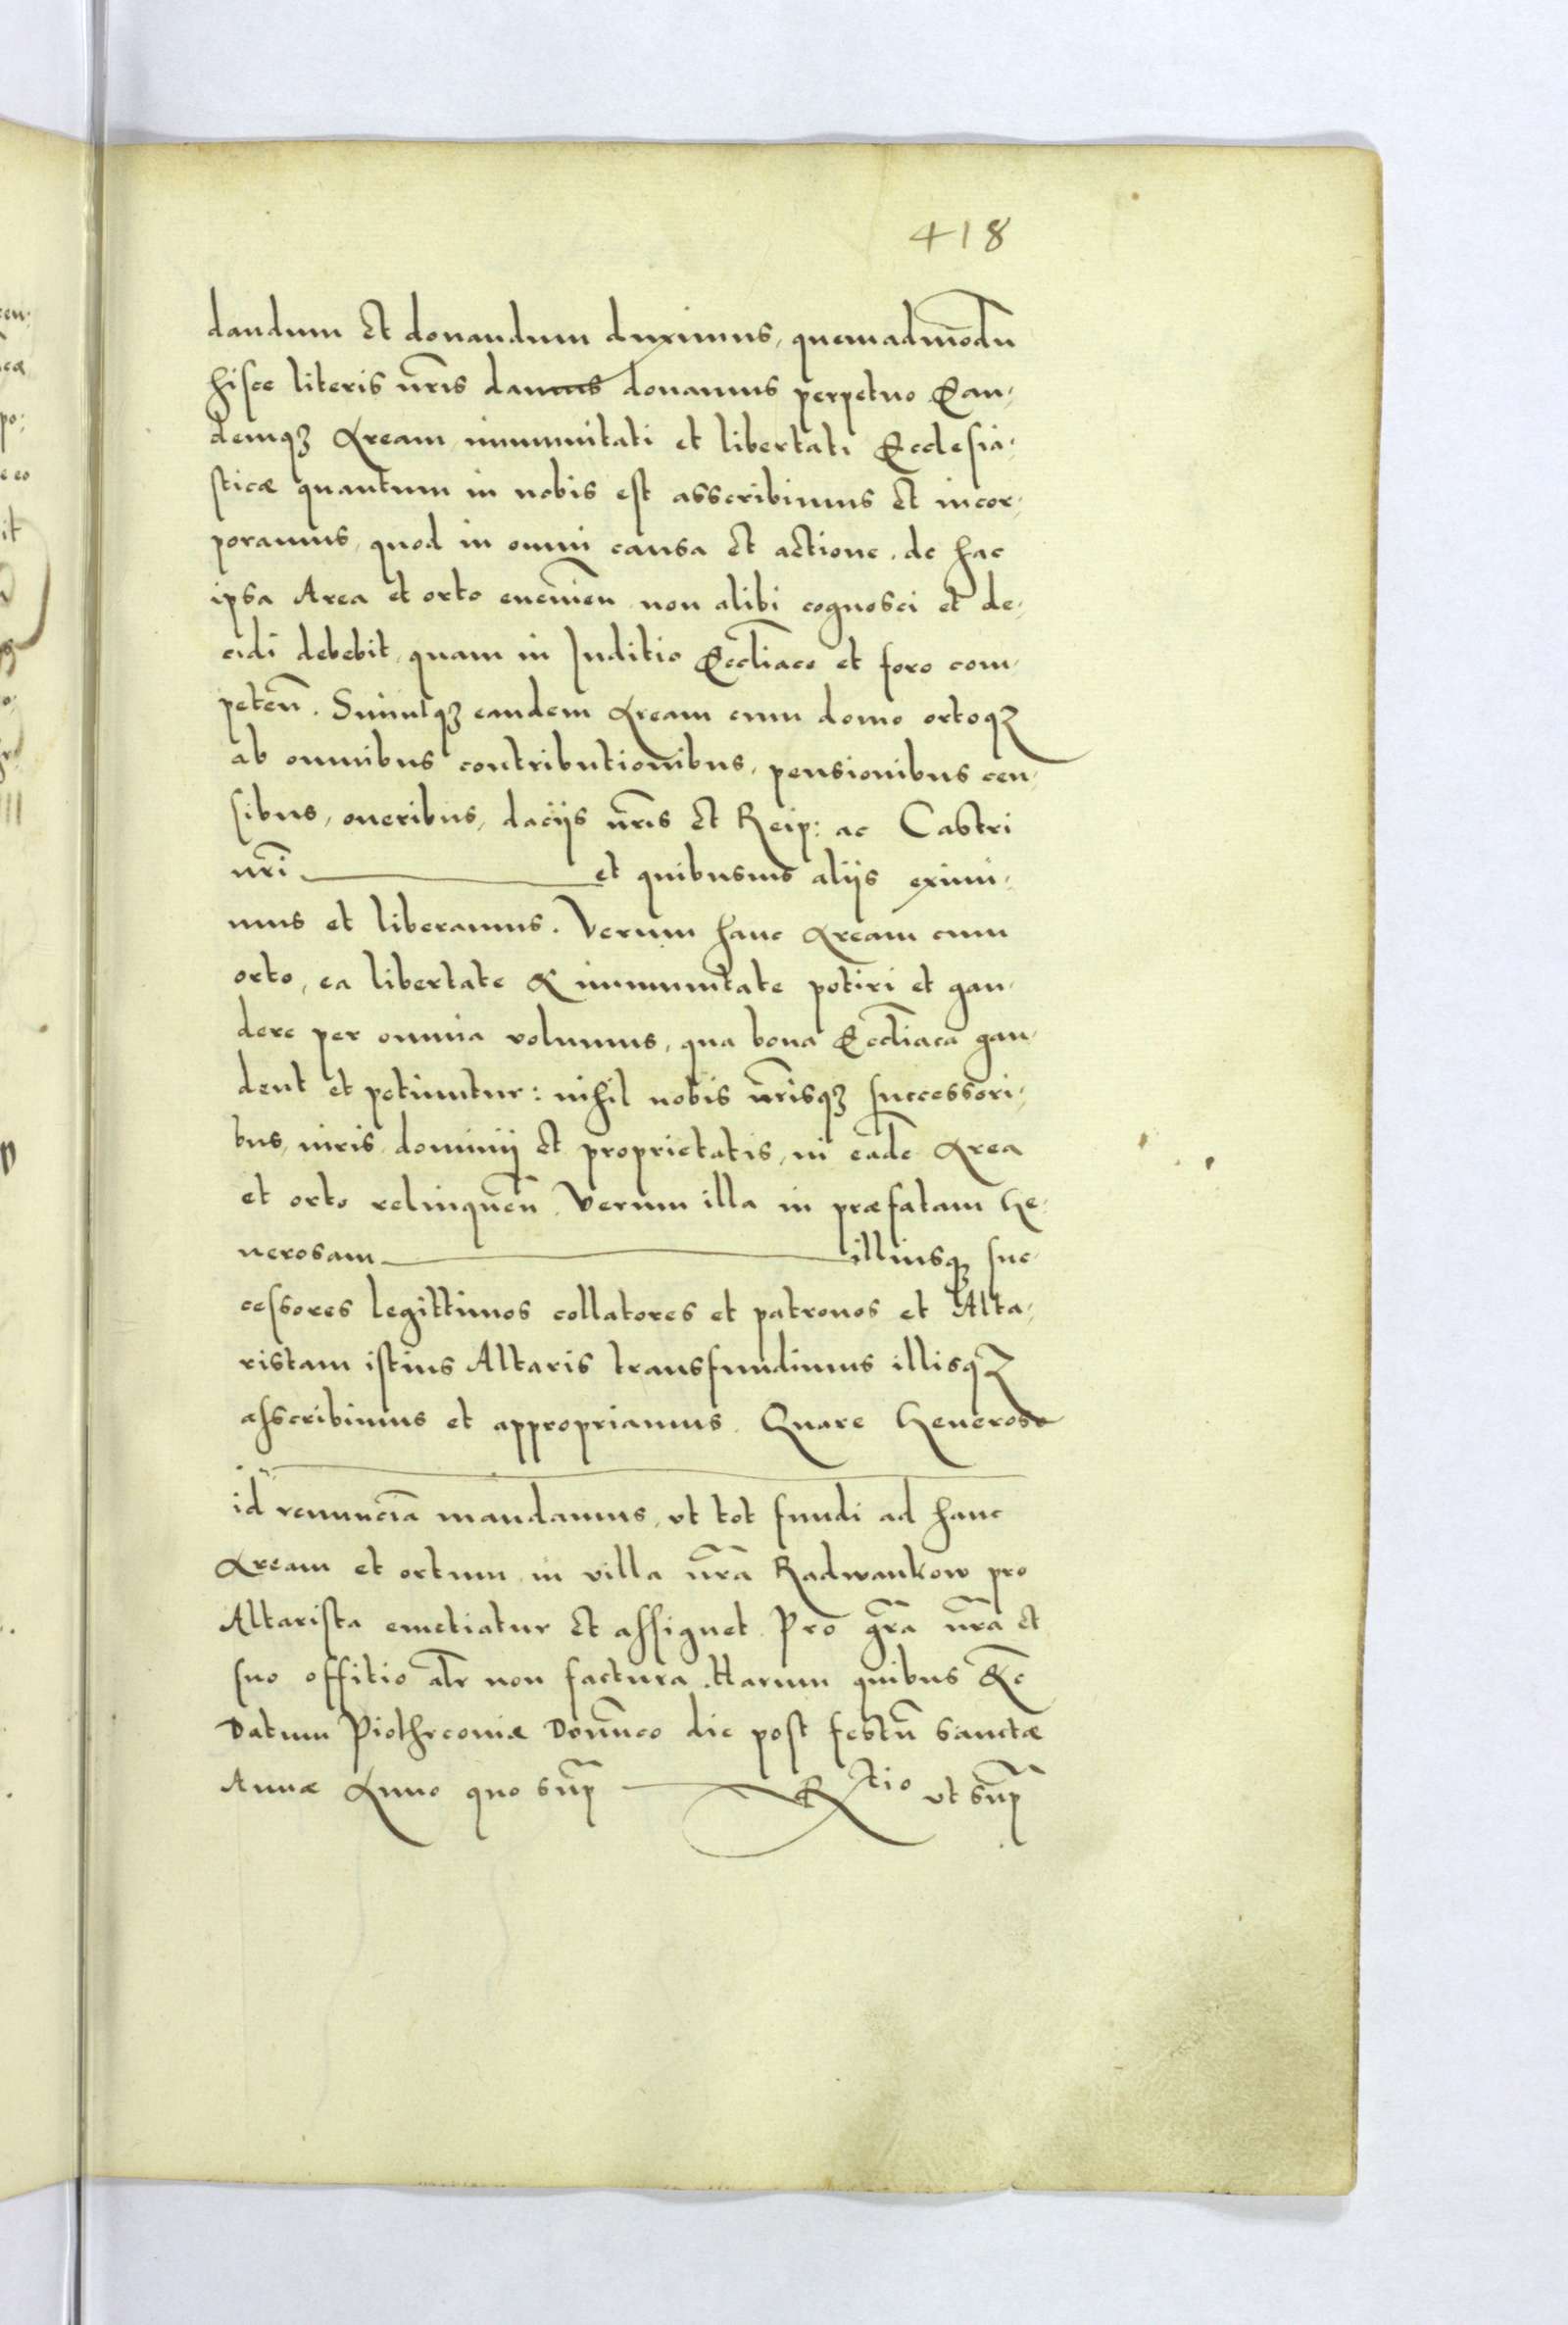 418
dandum et donandum duximus, quemadmodũ
hisce literis nr̃is damus donamus perpetuo Ean-
demqz Aream immunitati et libertati Ecclesia-
sticæ quantum in nobis est asscribimus et incor-
poramus, quod in omni causa et actione, de hac
ipsa Area et orto eueniеñ non alibi cognosci et de-
cidi debebit, quam in Juditio Eccl̃iaco et foro com-
peteñ. Simulqz eandem Aream cum domo ortoqz
ab omnibus contributionibus, pensionibus cen-
sibus, oneribus, daciis nr̃is et Reip: ac Castri
nr̃i et quibusuis aliis eximi-
mus et liberamus. Verum hanc Aream cum
orto, ea libertate & immunitate potiri et gau-
dere per omnia volumus, qua bona Eccl̃iaca gau-
dent et potiuntur: nihil nobis nr̃isqz successori-
bus, iuris, dominij et proprietatis, in eãde Area
et orto relinqueñ. Verum illa in præfatam Ge-
nerosam illiusqz suc-
cessores legittimos collatores et patronos et Alta-
ristam istius Altaris transfundimus illisqz
asscribimus et appropriamus. Quare Generoso
id renunciã mandamus, vt tot fundi ad hanc
Aream et ortum in villa nr̃a Radwankow pro
Altarista emetiatur et assignet. Pro gr̃a nr̃a et
suo offitio alr̃ non factura. Harum quibus &c̃
Datum Piothrconiæ Domĩco die post festũ sanctæ
Annæ Anno quo sup̃ Rtio vt sup̃